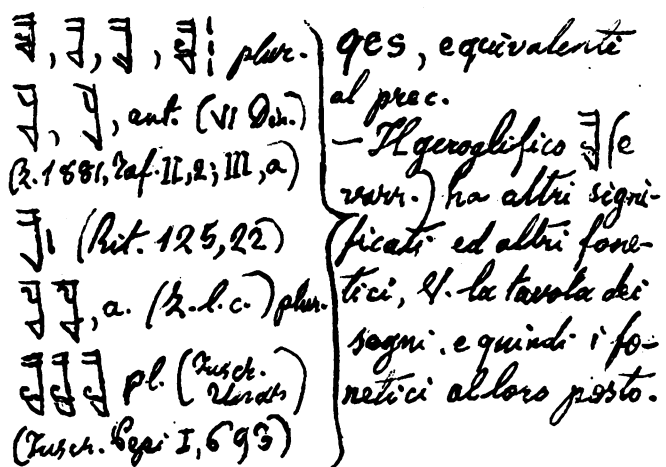 plur.
ant. (VI Din.)
(Z. 1881, Taf. II, 2; III, a)
(Rit. 125, 22)
, a. (Z. l. c.) plur.
pl. (Insch.
Unas)
(Insch. Pepi I, 693)
qes, equivalenti
al prec.
— Il geroglifico (e
varr.) ha altri signi-
ficati ed altri fone-
tici, V. la tavola dei
segni, e quindi i fo-
netici al loro posto.